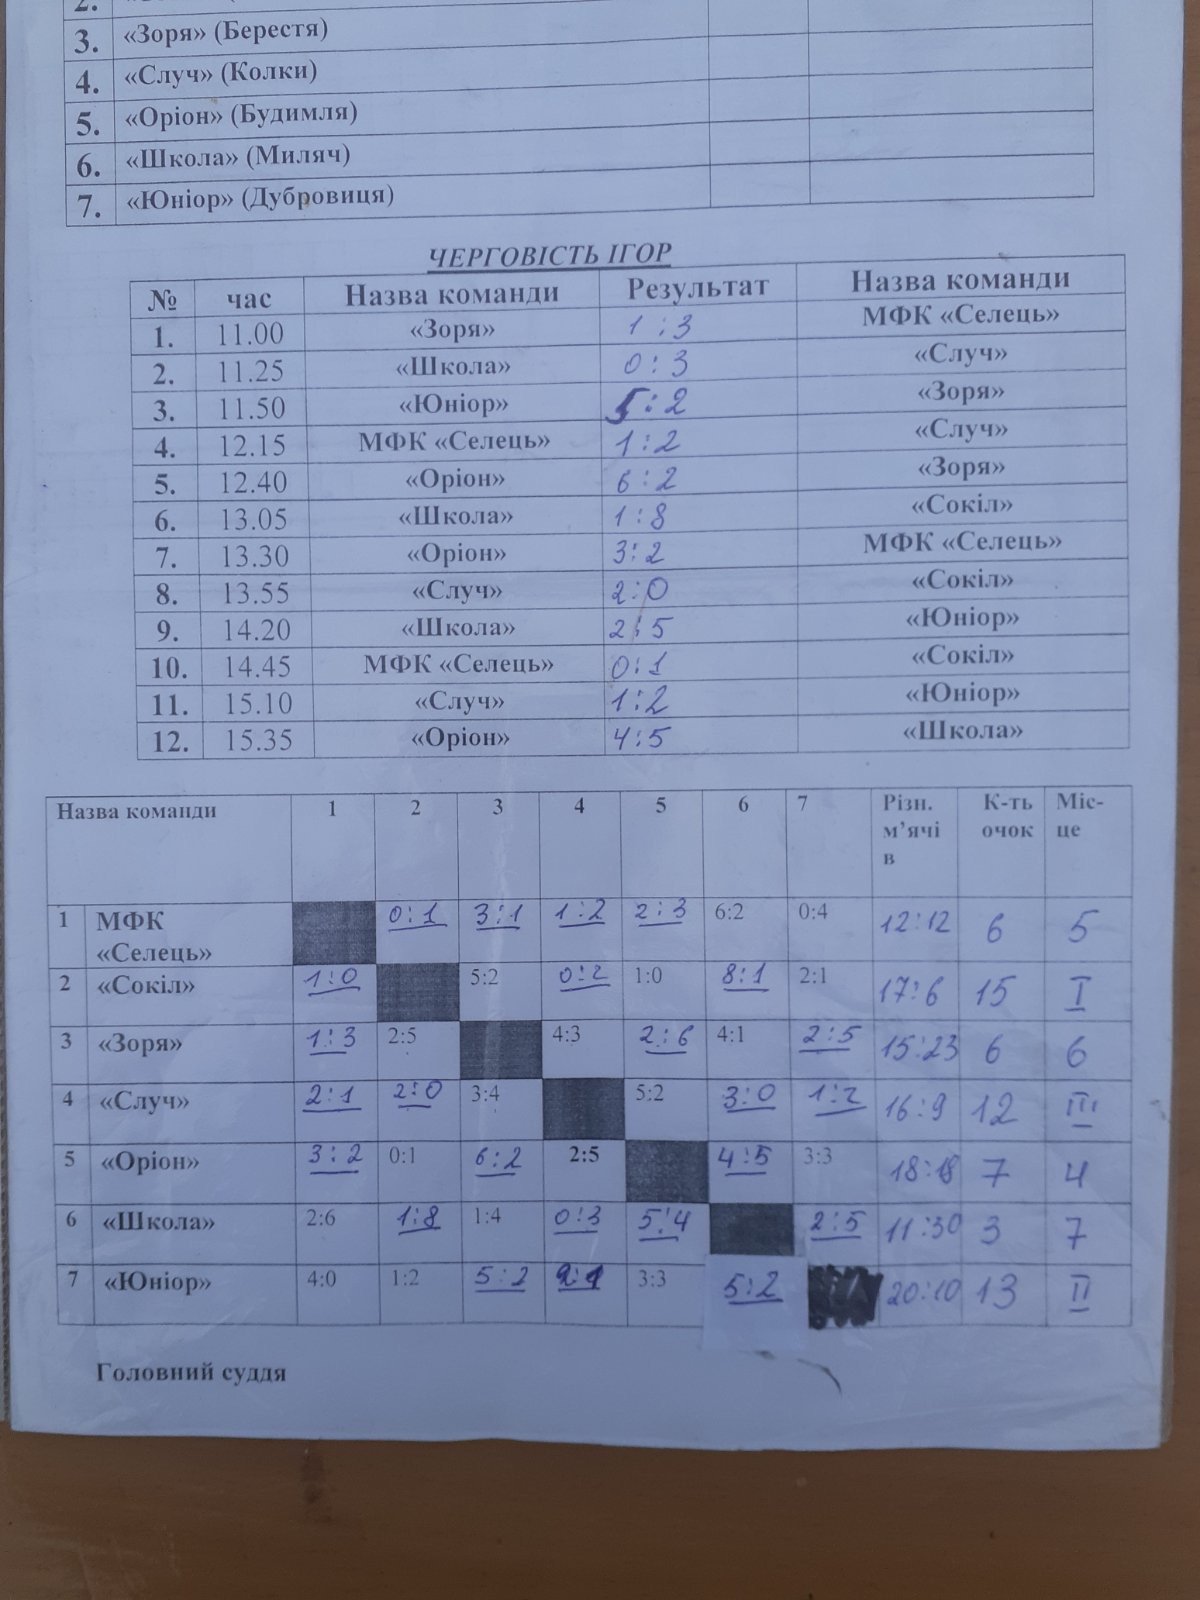 2.
3. «Зоря» (Берестя)
4. «Случ» (Колки)
5. «Оріон» (Будимля)
6. «Школа» (Миляч)
7. «Юніор» (Дубровиця)
ЧЕРГОВІСТЬ ІГОР
№ час Назва команди Результат Назва команди
1. 11.00 «Зоря» 1:3 МФК «Селець»
2. 11.25 «Школа» 0:3 «Случ»
3. 11.50 «Юніор» 5:2 «Зоря»
4. 12.15 МФК «Селець» 1:2 «Случ»
5. 12.40 «Оріон» 6:2 «Зоря»
6. 13.05 «Школа» 1:8 «Сокіл»
7. 13.30 «Оріон» 3:2 МФК «Селець»
8. 13.55 «Случ» 2:0 «Сокіл»
9. 14.20 «Школа» 2:5 «Юніор»
10. 14.45 МФК «Селець» 0:1 «Сокіл»
11. 15.10 «Случ» 1:2 «Юніор»
12. 15.35 «Оріон» 4:5 «Школа»
Назва команди 1 2 3 4 5 6 7 Різн. К-ть Міс-
м’ячі очок це
в
1 МФК 0:1 3:1 1:2 2:3 6:2 0:4 12:12 6 5
«Селець»
2 «Сокіл» 1:0 5:2 0:2 1:0 8:1 2:1 17:6 15 I
3 «Зоря» 1:3 2:5 4:3 2:6 4:1 2:5 15:23 6 6
4 «Случ» 2:1 2:0 3:4 5:2 3:0 1:2 16:9 12 III
5 «Оріон» 3:2 0:1 6:2 2:5 4:5 3:3 18:18 7 4
6 «Школа» 2:6 1:8 1:4 0:3 5:4 2:5 11:30 3 7
7 «Юніор» 4:0 1:2 5:2 2:1 3:3 5:2 20:10 13 II
Головний суддя